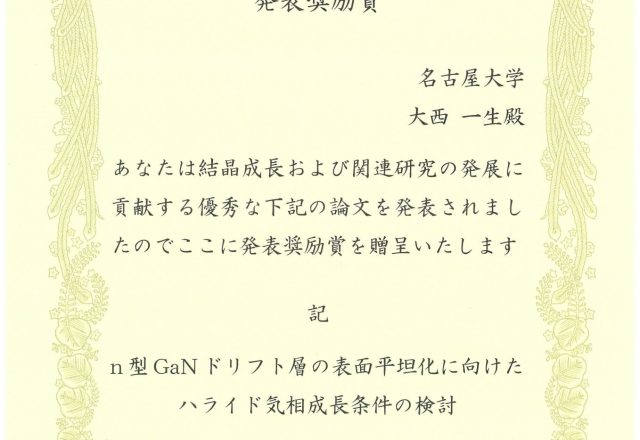 発表奨励賞
名古屋大学
大西 一生殿
あなたは結晶成長および関連研究の発展に
貢献する優秀な下記の論文を発表されまし
たのでここに発表奨励賞を贈呈いたします
記
n型GaNドリフト層の表面平坦化に向けた
ハライド気相成長条件の検討